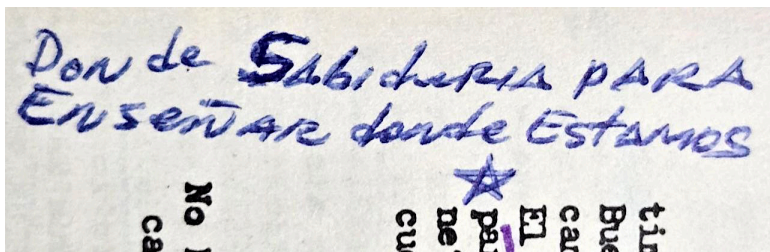 Donde Sabiduria para
Enseñar donde Estamos
No
ca
cu
ne
pa
El
car
Bue
tin